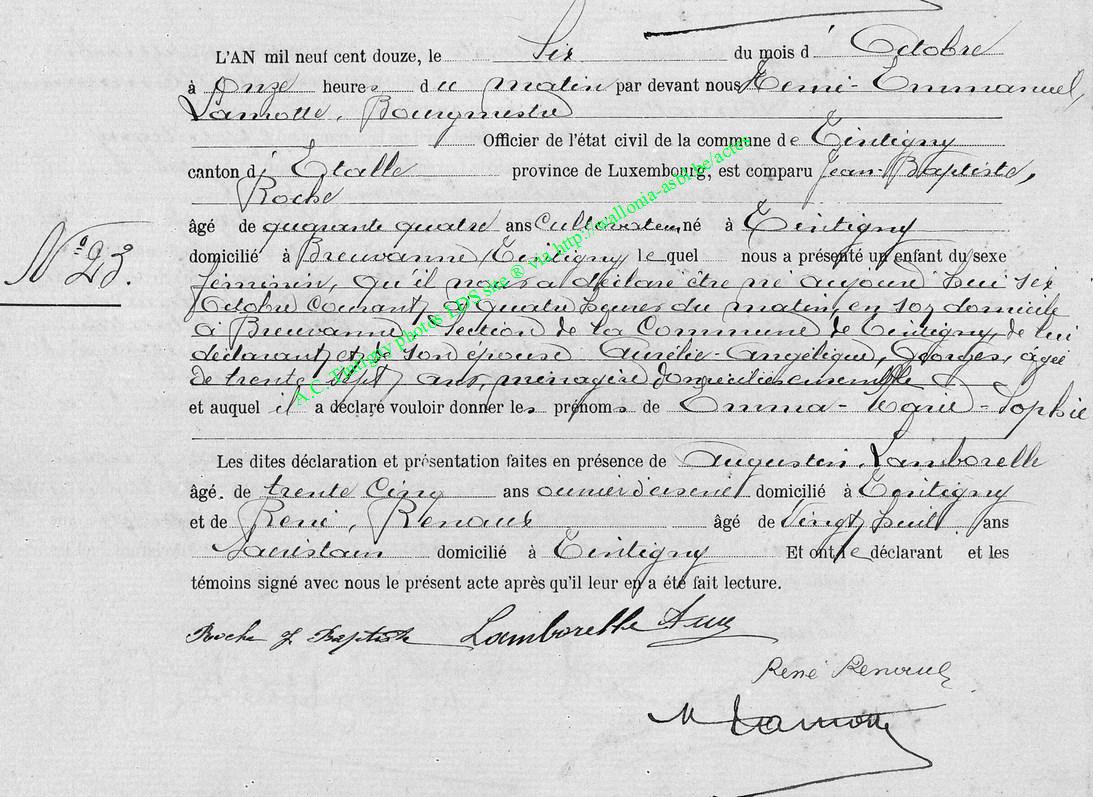 L'AN mil neuf cent douze, le Six du mois d' Octobre
à Onze heures du matin par devant nous Remi-Emmanuel,
Lamotte, Bourgmestre
Officier de l'état civil de la commune de Tintigny
canton d' Etalle province de Luxembourg, est comparu Jean-Baptiste,
Roche
âgé de quarante quatre ans Cultivateur, né à Tintigny
domicilié à Breuvanne Tintigny lequel nous a présenté un enfant du sexe
N° 23.
féminin, qu'il nous a déclaré être né aujourd'hui six
Octobre courant, à quatre heures du matin, en son domicile
à Breuvanne, Section de la Commune de Tintigny, de lui
déclarant et de son épouse Aurélie-Angélique, Georges, âgée
de trente sept ans, ménagère domiciliés ensemble
et auquel il a déclaré vouloir donner les prénoms de Emma-Marie-Sophie
Les dites déclaration et présentation faites en présence de Augustin, Lamborelle
âgé de trente cinq ans domicilié à Tintigny
et de René, Renaux âgé de Vingt huit ans
Sacristain domicilié à Tintigny Et ont le déclarant et les
témoins signé avec nous le présent acte après qu'il leur en a été fait lecture.
Roche J Baptiste Lamborelle Aug
René Renaux
Lamotte
A.C. Tintigny photos LDS site ® via http://wallonia-asbl.be/actes